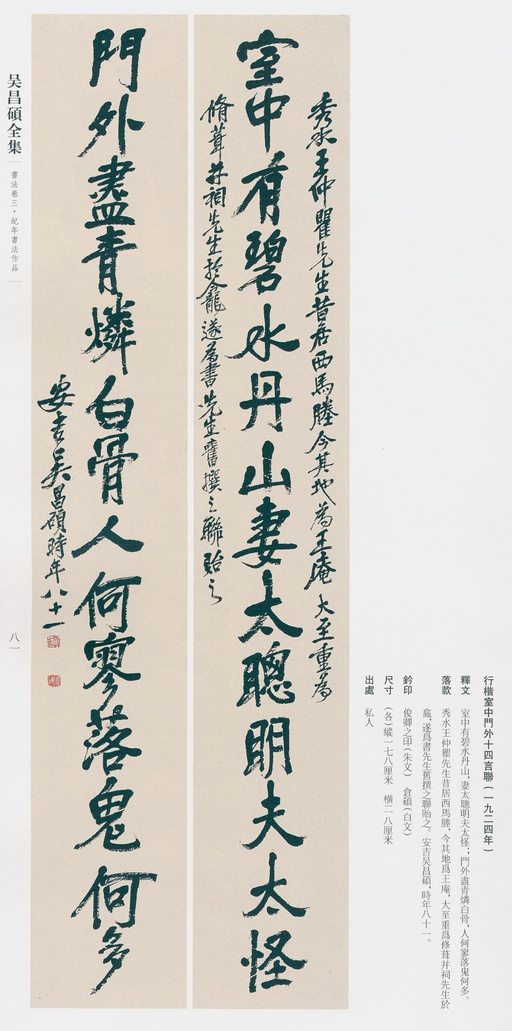 室中有碧水丹山妻太聰明夫太怪
秀水王仲瞿先生昔居西馬塍今其地為王庵大至重為
脩葺并祠先生於龕遂為書先生舊撰之聯貽之
門外盡青燐白骨人何寥落鬼何多
安吉吴昌碩時年八十一
吴昌碩全集
書法卷三·紀年書法作品
八一
行楷室中門外十四言聯(一九二四年)
釋文 室中有碧水丹山,妻太聰明夫太怪;門外盡青燐白骨,人何寥落鬼何多。
落款 秀水王仲瞿先生昔居西馬塍,今其地爲王庵,大至重爲修葺并祠先生於
龕,遂爲書先生舊撰之聯貽之。安吉吴昌碩,時年八十一。
鈐印 俊卿之印(朱文) 倉碩(白文)
尺寸 (各)縱一七八厘米 橫二八厘米
出處 私人